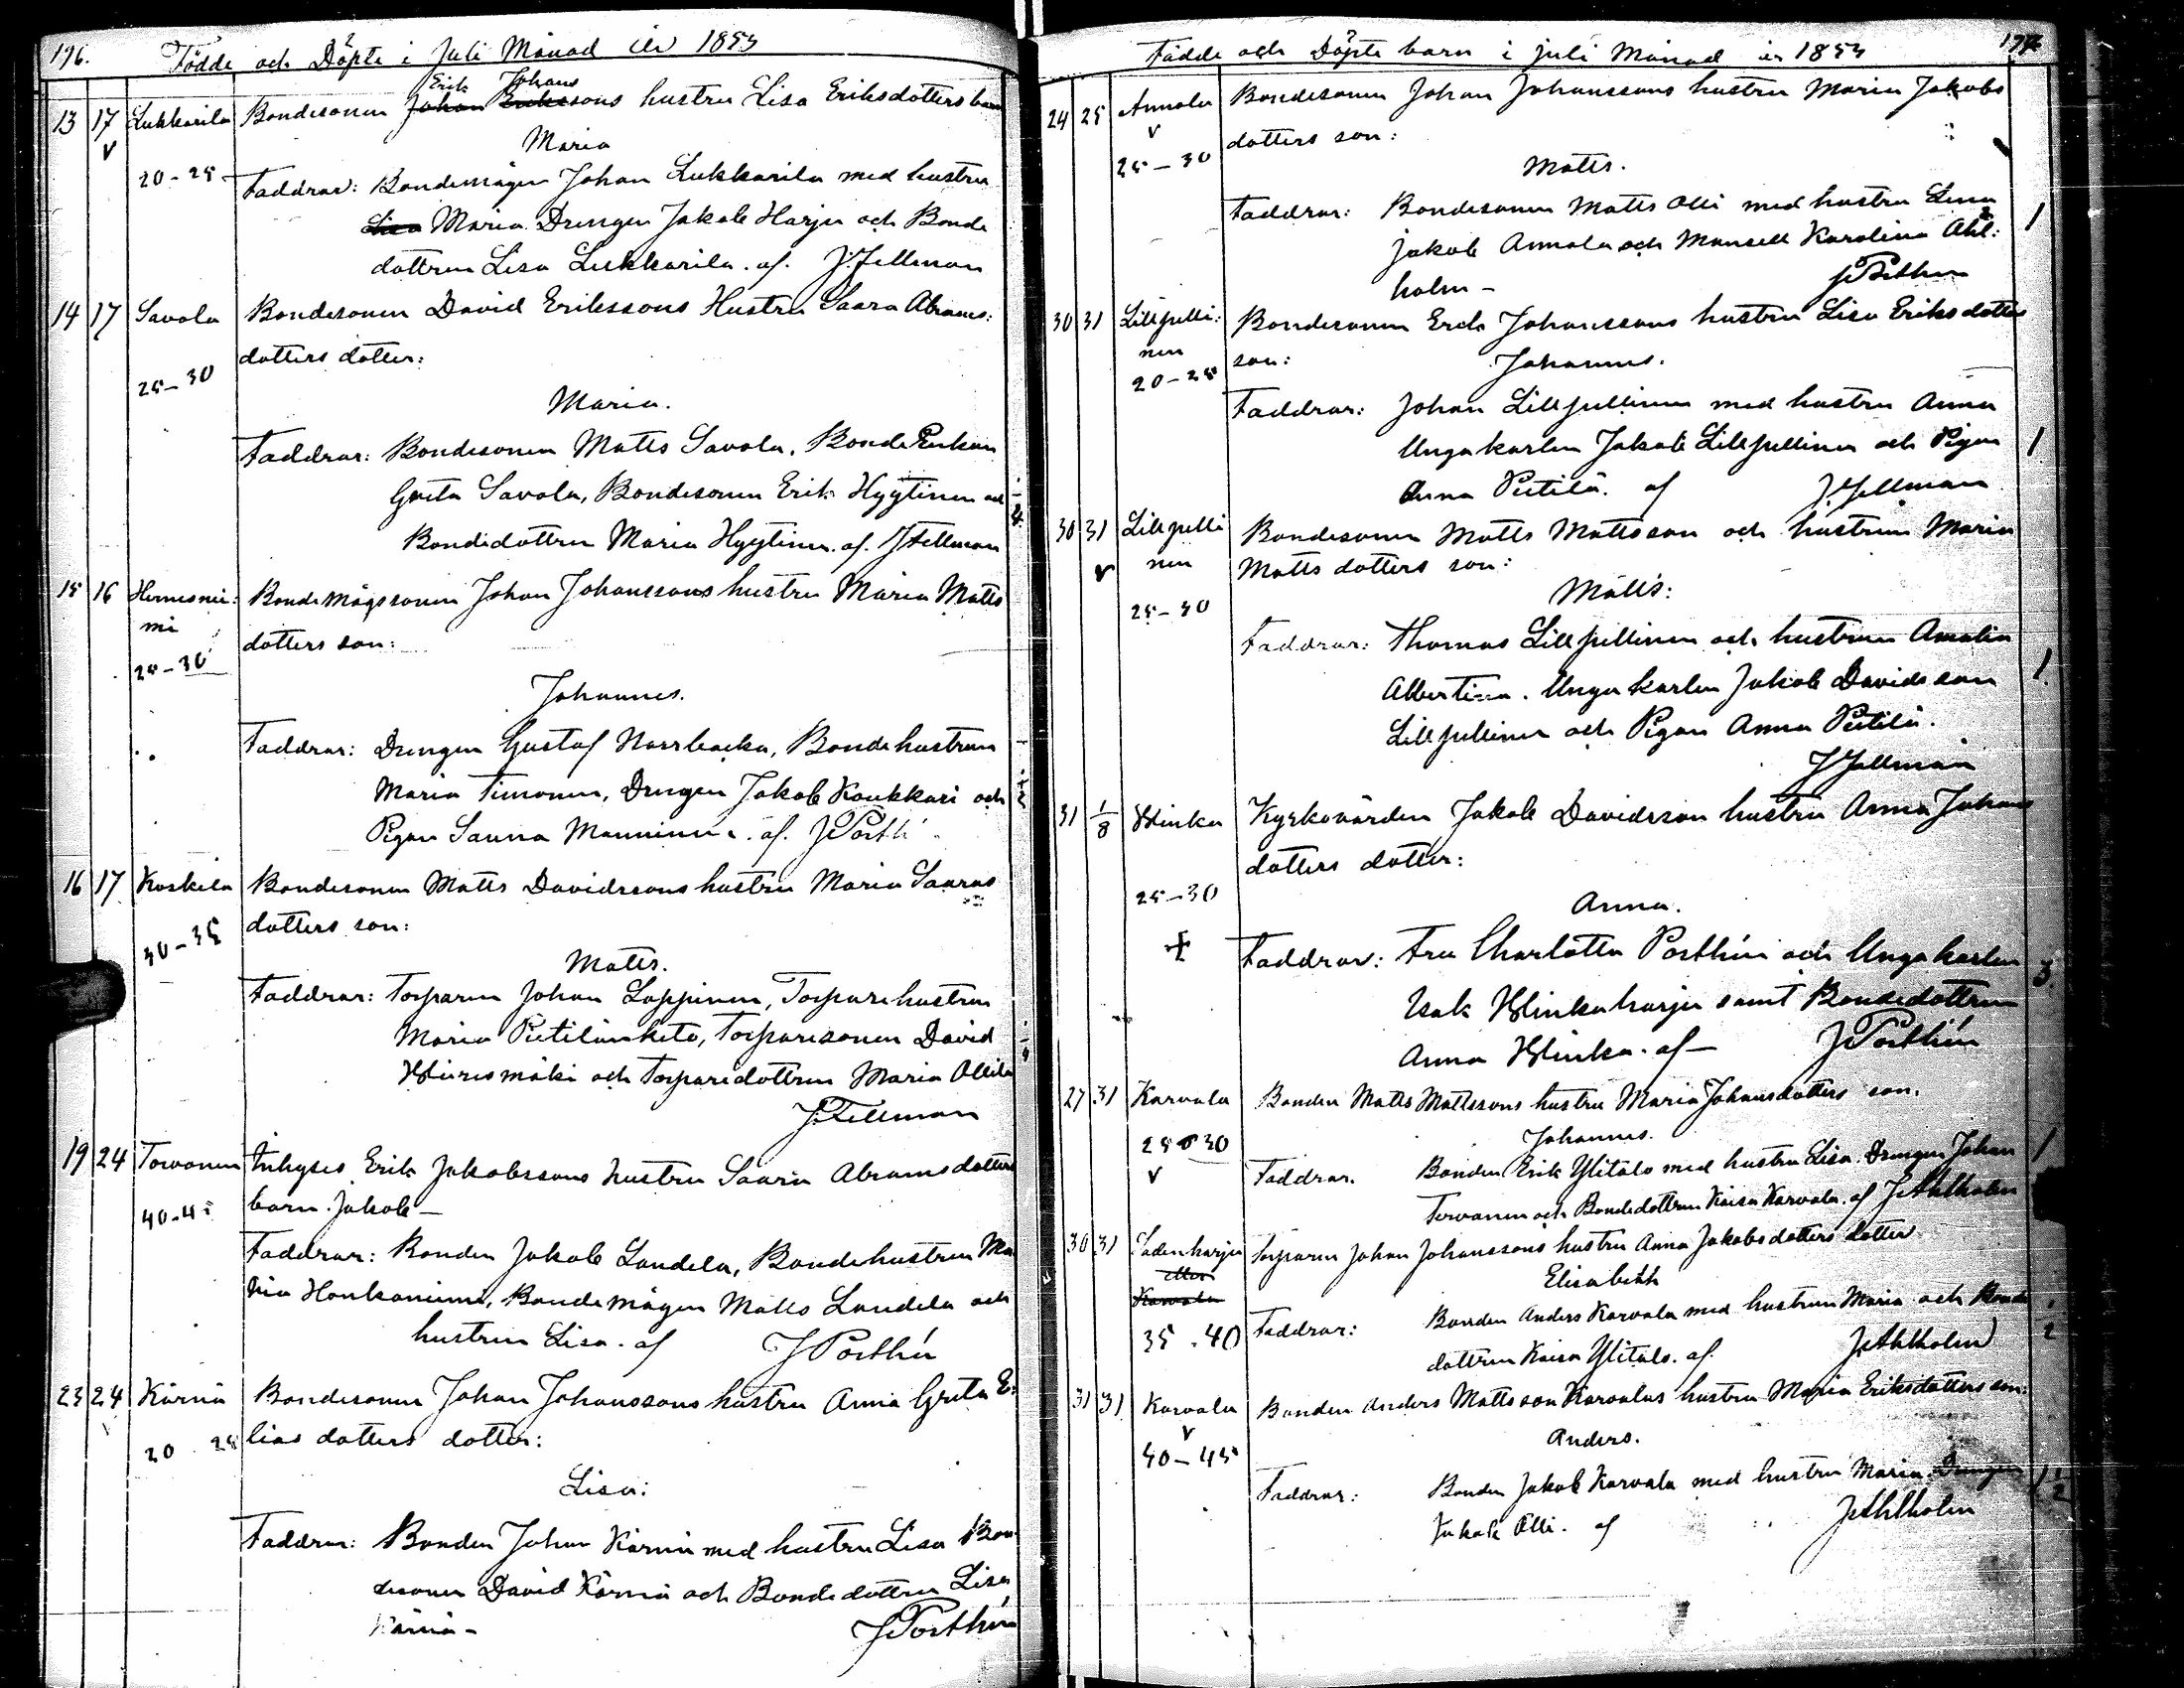 196.
Födde och Döpte i Juli Månad år 1853
13 17 Lukkarila Bondesonen Johan Erikssons Erik Johans hustru Lisa Eriksdotters barn
Maria
20-25
Faddrar: Bondemågen Johan Lukkarila med hustru
Lisa Maria Drengen Jakob Harju och Bonde
dottren Lisa Lukkarila. af. J. Fellman
14 17 Savola Bondesonen David Erikssons Hustru Saara Abrams:
dotters dotter:
25-30
Maria.
Faddrar: Bondesonen Matts Savola, Bonde Enkan
Greta Savola, Bondesonen Erik Hyytinen och
Bondedottren Maria Hyytinen. af. J Fellman
15 16 Hernesnie: Bonde Mågssonen Johan Johanssons hustru Maria Matts
mi dotters son:
25-30
Johannes.
Faddrar: Drengen Gustaf Norrbacka, Bondehustrun
Maria Timonen, Drengen Jakob Koukkari och
Pigan Sanna Manninen. af. J Porth
16 17 Koskela Bondesonen Matts Davidssons hustru Maria
dotters son:
30-35
Matts.
Faddrar: Torparen Johan Lappinen, Torparehustrun
Maria, Torparesonen David
och Torparedottren Maria Ollila
J. Fellman
19 24 Torvonen Inhyses Erik Jakobssons hustru Saara Abramsdotters
40-45 barn. Jakob-
Faddrar: Bonden Jakob Sandela, Bondehustrun Ma
ria Honkaniemi, Bondemågen Matts Sandela och
hustrun Lisa. af J Porthén
23 24 Kärnä Bondesonen Johan Johanssons hustru Anna Greta E:
20 25 lias dotters dotter:
Lisa:
Faddrar: Bonden Johan Kärnä med hustru Lisa Bon
desonen David Kärnä och Bondedottren Lisa
Kärnä- J Porthén
Födde och Döpte barn i juli Månad år 1853
24 25 Annala Bondesonen Johan Johanssons hustru Maria Jakobs
dotters son:
25-30
Matts.
Faddrar: Bondesonen Matts Olli med hustru Lena
Jakob Annala och Mamsell Karolina Ahl:
holm- J Porthén
30 31 Lillpelli: Bondesonen Erik Johanssons hustru Lisa Eriksdotters
nen son: Johannes.
20-25
Faddrar: Johan Lillpellinen med hustru Anna
Ungakarlen Jakob Lillpellinen och Pigan
Anna Pietilä. af J. Fellman
30 31 Lillpelli Bondesonen Matts Mattsson och hustrun Maria
nen Mattsdotters son:
Matts:
25-30
Faddrar: Thomas Lillpellinen och hustrun Amalia
Albertina. Ungakarlen Jakob Davidsson
Lillpellinen och Pigan Anna Pietilä.
J Fellman
31 1/8 Hinka Kyrkovärden Jakob Davidsson hustru Anna Johans
dotters dotter:
25-30
Anna.
Faddrar: Fru Charlotta Porthén och Ungakarlen
Isak Hinkaharju samt Bondedottren
Anna Hinka. af- J Porthén
27 31 Karvala Bonden Matts Mattssons hustru Maria Johansdotters son.
25-30 Johannes.
Faddrar. Bonden Erik Ylitalo med hustru Lisa. Drengen Johan
Torvonen och Bondedottren Kaisa Karvala. af J Ahlholm
30 31 Sadenharju Torparen Johan Johanssons hustru Anna Jakobsdotters dotter
eller Elisabeth
Karvala
35-40 Faddrar: Bonden Anders Karvala med hustrun Maria och Bonde
dottren Kaisa Ylitalo. af. J Ahlholm
31 31 Karvala Bonden Anders Mattsson Karvalas hustru Maria Eriksdotters son:
40-45 Anders.
Faddrar: Bonden Jakob Karvala med hustru Maria. Drengen
Jakob Olli. af J Ahlholm